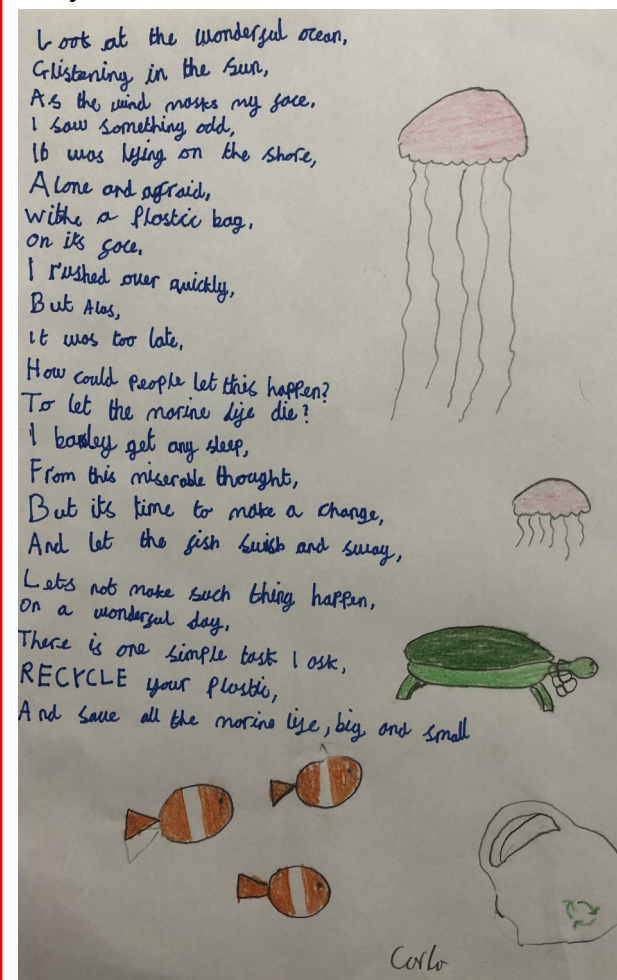 Look at the wonderful ocean,
Glistening in the sun,
As the wind masks my face,
I saw something odd,
It was lying on the shore,
Alone and afraid,
withe a Plastic bag,
on its face.
I rushed over quickly,
But Alas,
it was too late,
How could people let this happen?
To let the marine life die?
I barley get any sleep,
From this miserable thought,
But its time to make a change,
And let the fish swish and sway,
Lets not make such thing happen,
on a wonderful day,
There is one simple task I ask,
RECYCLE your Plastic,
And save all the marine life, big and small
Carlo